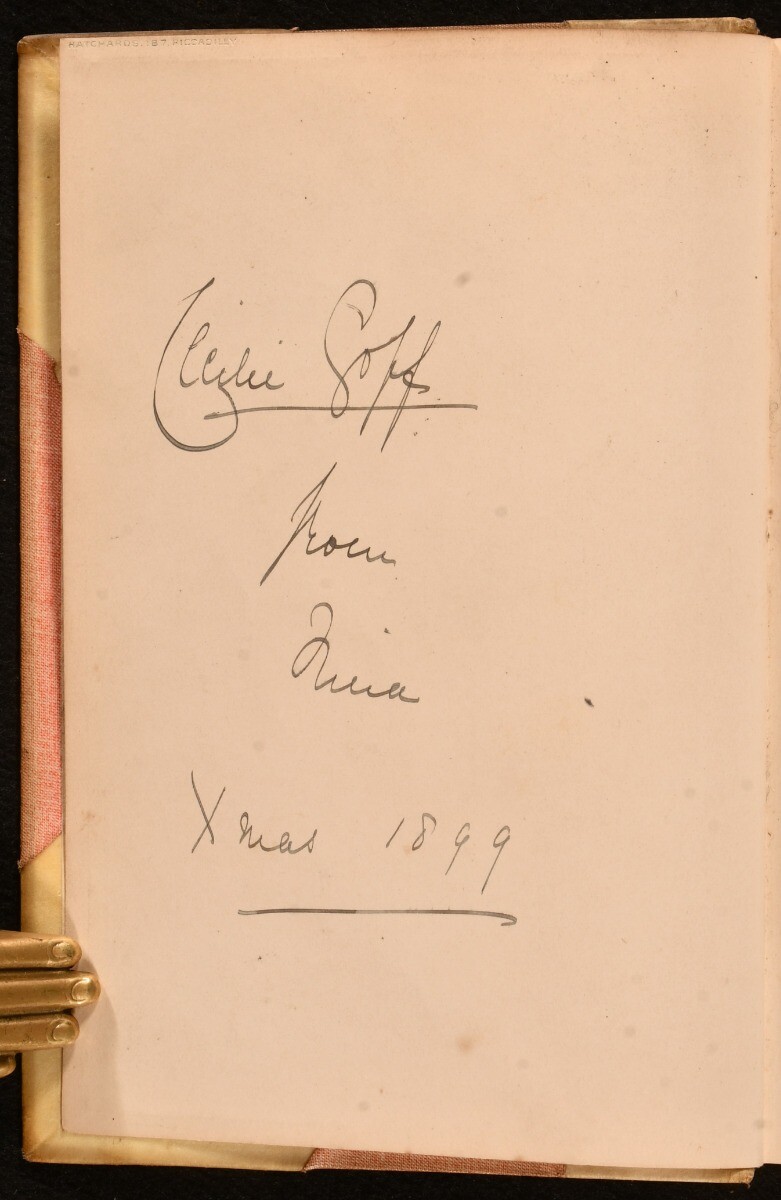 HATCHARDS, 187, PICCADILLY
Cecilie Goff
from
Nina
Xmas 1899